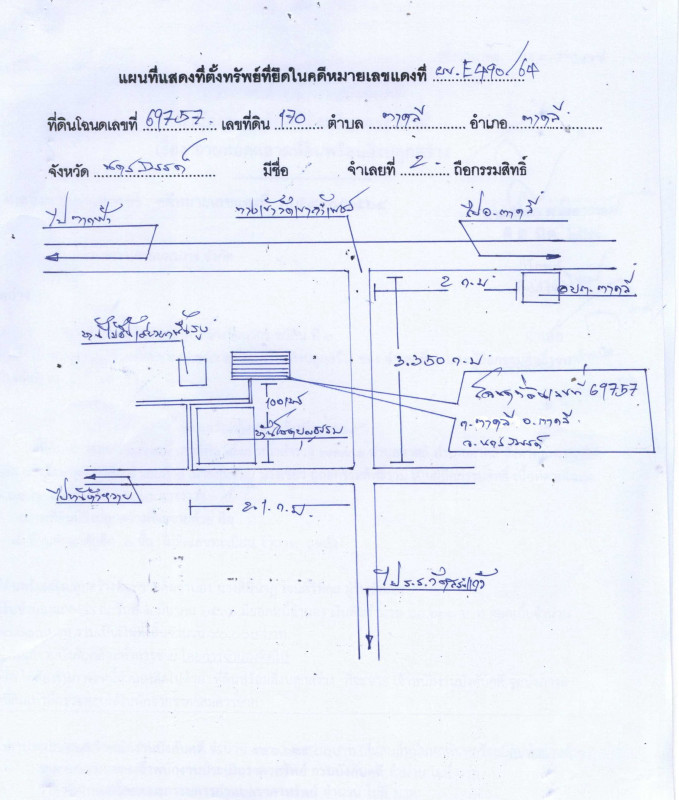 แผนที่แสดงที่ตั้งทรัพย์ที่ยึดในคดีหมายเลขแดงที่ ผบ.E490/64
ที่ดินโฉนดเลขที่ 69757 เลขที่ดิน 170 ตำบล ตาคลี อำเภอ ตาคลี
จังหวัด นครสวรรค์ มีชื่อ จำเลยที่ 2 ถือกรรมสิทธิ์
ไปตากฟ้า
ทางเข้าวัดเขาถ้ำเพชร
ไปอ.ตาคลี
2 ก.ม
อบต.ตาคลี
บ้านไม้ชั้นเดียวยกพื้นสูง
3.350 ก.ม
โฉนดที่ดินเลขที่ 69757
ต.ตาคลี อ.ตาคลี
จ.นครสวรรค์
100เมตร
ไปบ้าน
2.1 ก.ม
ไป ร.ร.วัดสระแก้ว